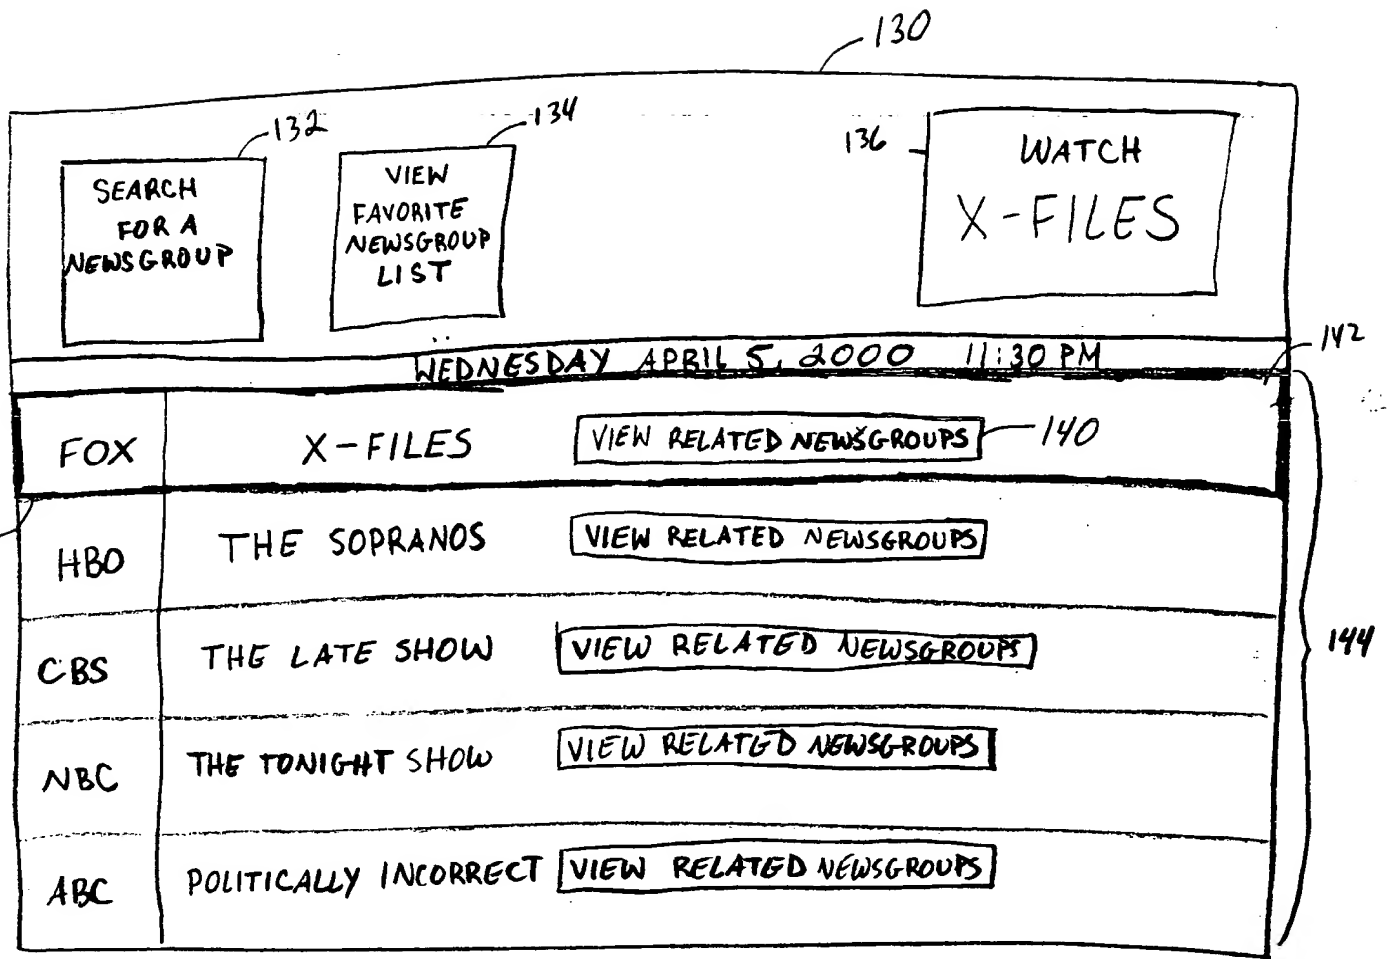 130
132
134
136
SEARCH
FOR A
NEWSGROUP
VIEW
FAVORITE
NEWSGROUP
LIST
WATCH
X-FILES
WEDNESDAY APRIL 5, 2000 11:30 PM
142
FOX X-FILES VIEW RELATED NEWSGROUPS 140
HBO THE SOPRANOS VIEW RELATED NEWSGROUPS
CBS THE LATE SHOW VIEW RELATED NEWSGROUPS
144
NBC THE TONIGHT SHOW VIEW RELATED NEWSGROUPS
ABC POLITICALLY INCORRECT VIEW RELATED NEWSGROUPS